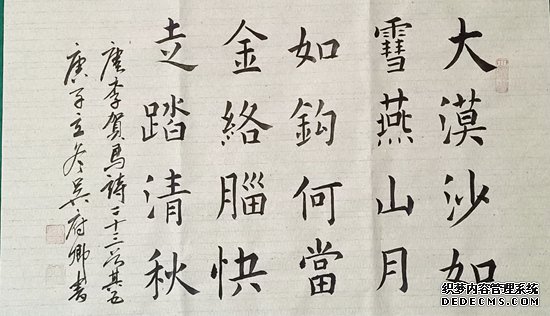 大漠沙如
雪燕山月
如鈎何當
金絡腦快
走踏清秋
唐李賀馬詩二十三首其五
庚子立冬吴府卿書
织梦内容管理系统
DEDECMS.COM